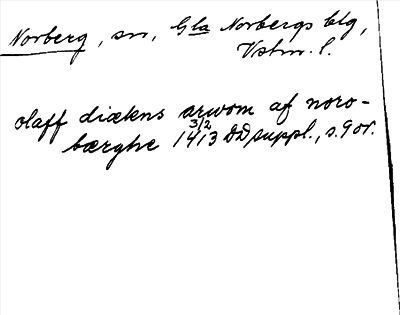 Norberg, sn, Gla Norbergs blg,
Vstm. l.
olaff diækens arwom af noro-
bærghe 3/2 1413 DD suppl., s. 9 or.